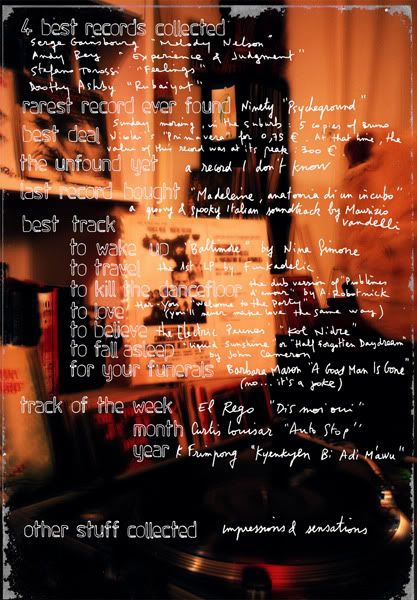 4 best records collected
Serge Gainsbourg "Melody Nelson"
Andy Bey "Experience & Judgment"
Stefano Torossi "Feelings"
Dorothy Ashby "Rubaiyat"
rarest record ever found Ninety "Psycheground"
best deal Sunday morning, in the suburb: 5 copies of Bruno
Nicolai "Primavera" for 0,75 €. At that time, the
value of this record was at its peak: 300 €.
the unfound yet a record I don't know
last record bought "Madeleine, anatomia di un incubo"
a groovy & spooky italian soundtrack by Maurizio
Vandelli
best track
to wake up "Baltimore" by Nina Simone
to travel the 1st LP by Funkadelic
to kill the dancefloor the dub version of "Problèmes
d'amour" by A. Robotnick
to love Har You "Welcome to the party"
(you'll never make love the same way)
to believe the Electric Prunes "Kol Nidre"
to fall asleep "Liquid Sunshine" or "Half Forgotten Daydream"
by John Cameron
for your funerals Barbara Mason "A Good Man Is Gone"
(no... it's a joke)
track of the week El Rego "Dis moi oui"
month Curtis Louisar "Auto Stop"
year K Frimpong "Kyenkyen Bi Adi M'awu"
other stuff collected impressions & sensations